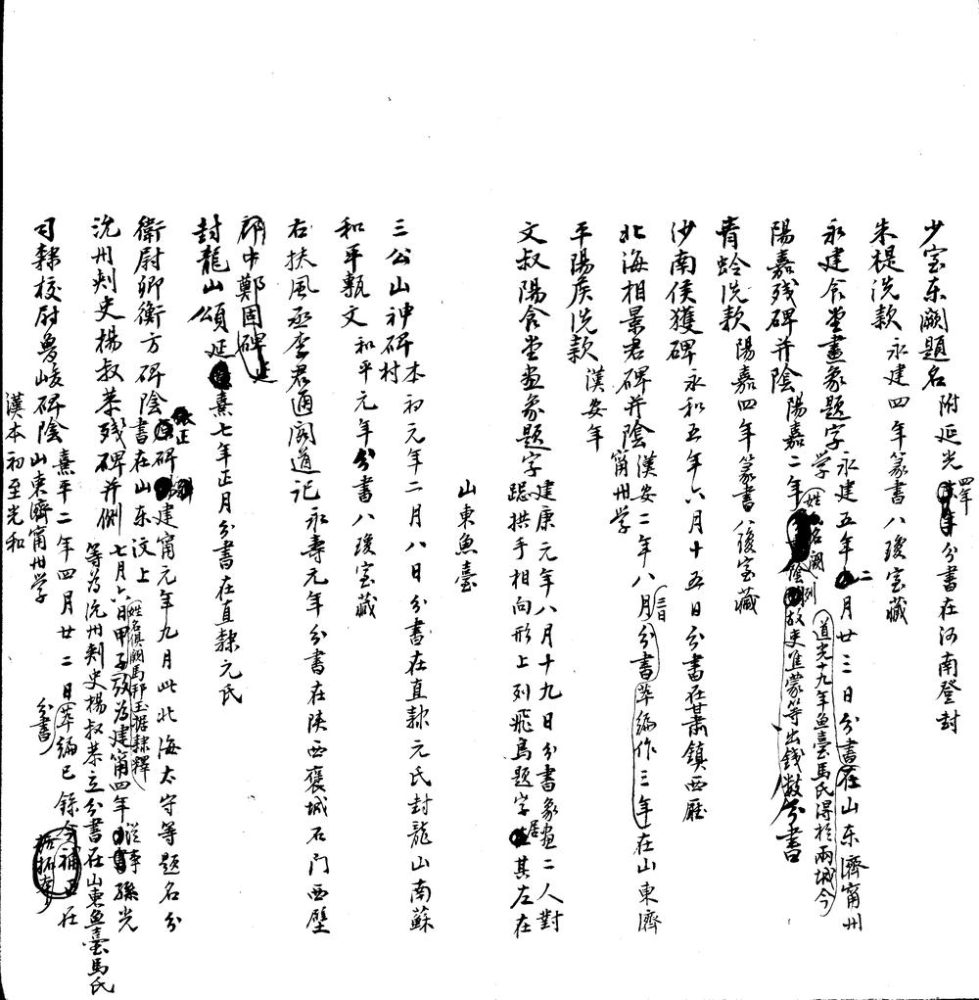 少室东闕題名 附延光四年分書在河南登封
朱提洗款 永建四年篆書八瓊室藏
永建食堂畫象題字 永建五年二月廿三日分書在山东濟甯州学 道光十九年魚臺馬氏得於兩城今
陽嘉残碑并陰 陽嘉二年 陰 故吏進蒙等出錢數分書 姓名闕 例
青蛉洗款 陽嘉四年篆書八瓊室藏
沙南侯獲碑 永和五年六月十五日分書在甘肅鎮西厛
北海相景君碑并陰 漢安二年八月分書萃編作三年在山東濟甯州学
平陽矦洗款 漢安年
文叔陽食堂畫象題字 建康元年八月十九日分書象畫二人對跽拱手相向形上列飛鳥題字居其左在山東魚臺
三公山神碑 本初元年二月八日分書在直隷元氏封龍山南蘇村
和平甎文 和平元年分書八瓊室藏
右扶風丞李君通閣道记 永壽元年分書在陕西褒城石门西壁
郎中鄭固碑 延
封龍山頌 延熹七年正月分書在直隷元氏
衛尉卿衡方碑陰 碑建甯元年九月此北海太守等題名分書在山东汶上 張正
沇州刺史楊叔恭残碑并側 七月六日甲子攷为建甯四年 從事孫光等为沇州刺史楊叔恭立分書在山東魚臺馬氏 姓名俱闕馬邦玉据隷釋
司隷校尉魯峻碑陰 熹平二年四月廿二日萃編已録今補正在山東濟甯州学 分書
漢本初至光和